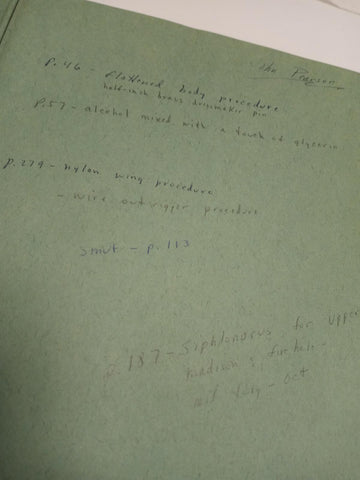 Pearson
p. 46 - flattened body procedure
half-inch brass dressmaker pin
p. 57 - alcohol mixed with a touch of glycerin
p. 279 - nylon wing procedure
- wire outrigger procedure
smut - p. 113
p. 187 - Siphlonorus for upper
madison & firehole -
mid July - Oct